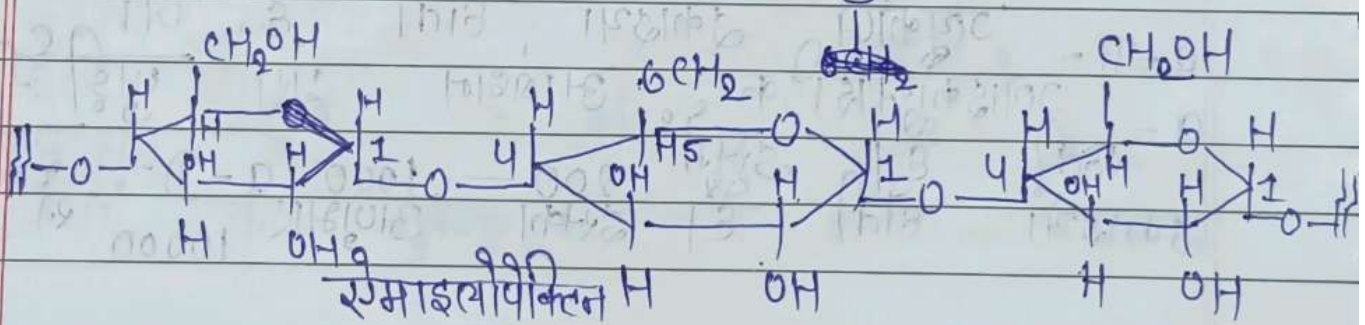 CH₂OH 6CH₂ CH₂OH
H H H H H O H
O H O H5 O O H
O OH H 1 O 4 OH H 1 O 4 OH H 1 O
H OH H OH H OH
एमाइलोपेक्टिन